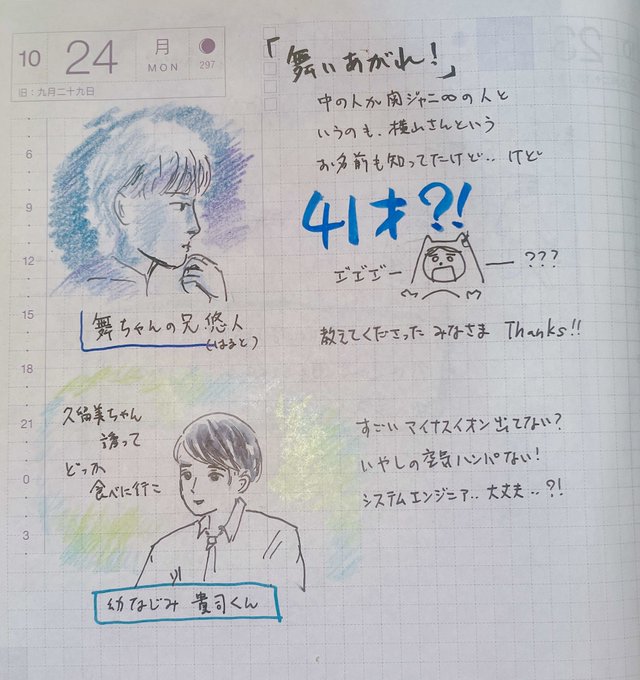 10
24
月
MON
297
旧:九月二十九日
「舞いあがれ!」
中の人が関ジャニ∞の人と
いうのも、横山さんという
お名前も知ってたけど‥けど
41才?!
ゴゴゴー
ー ???
教えてくださった みなさま Thanks!!
6
9
12
15
18
21
0
3
舞ちゃんの兄 悠人
(はると)
久留美ちゃん
誘って
どっか
食べに行こ
すごいマイナスイオン出てない?
いやしの空気ハンパない!
システムエンジニア‥大丈夫‥?!
幼なじみ 貴司くん